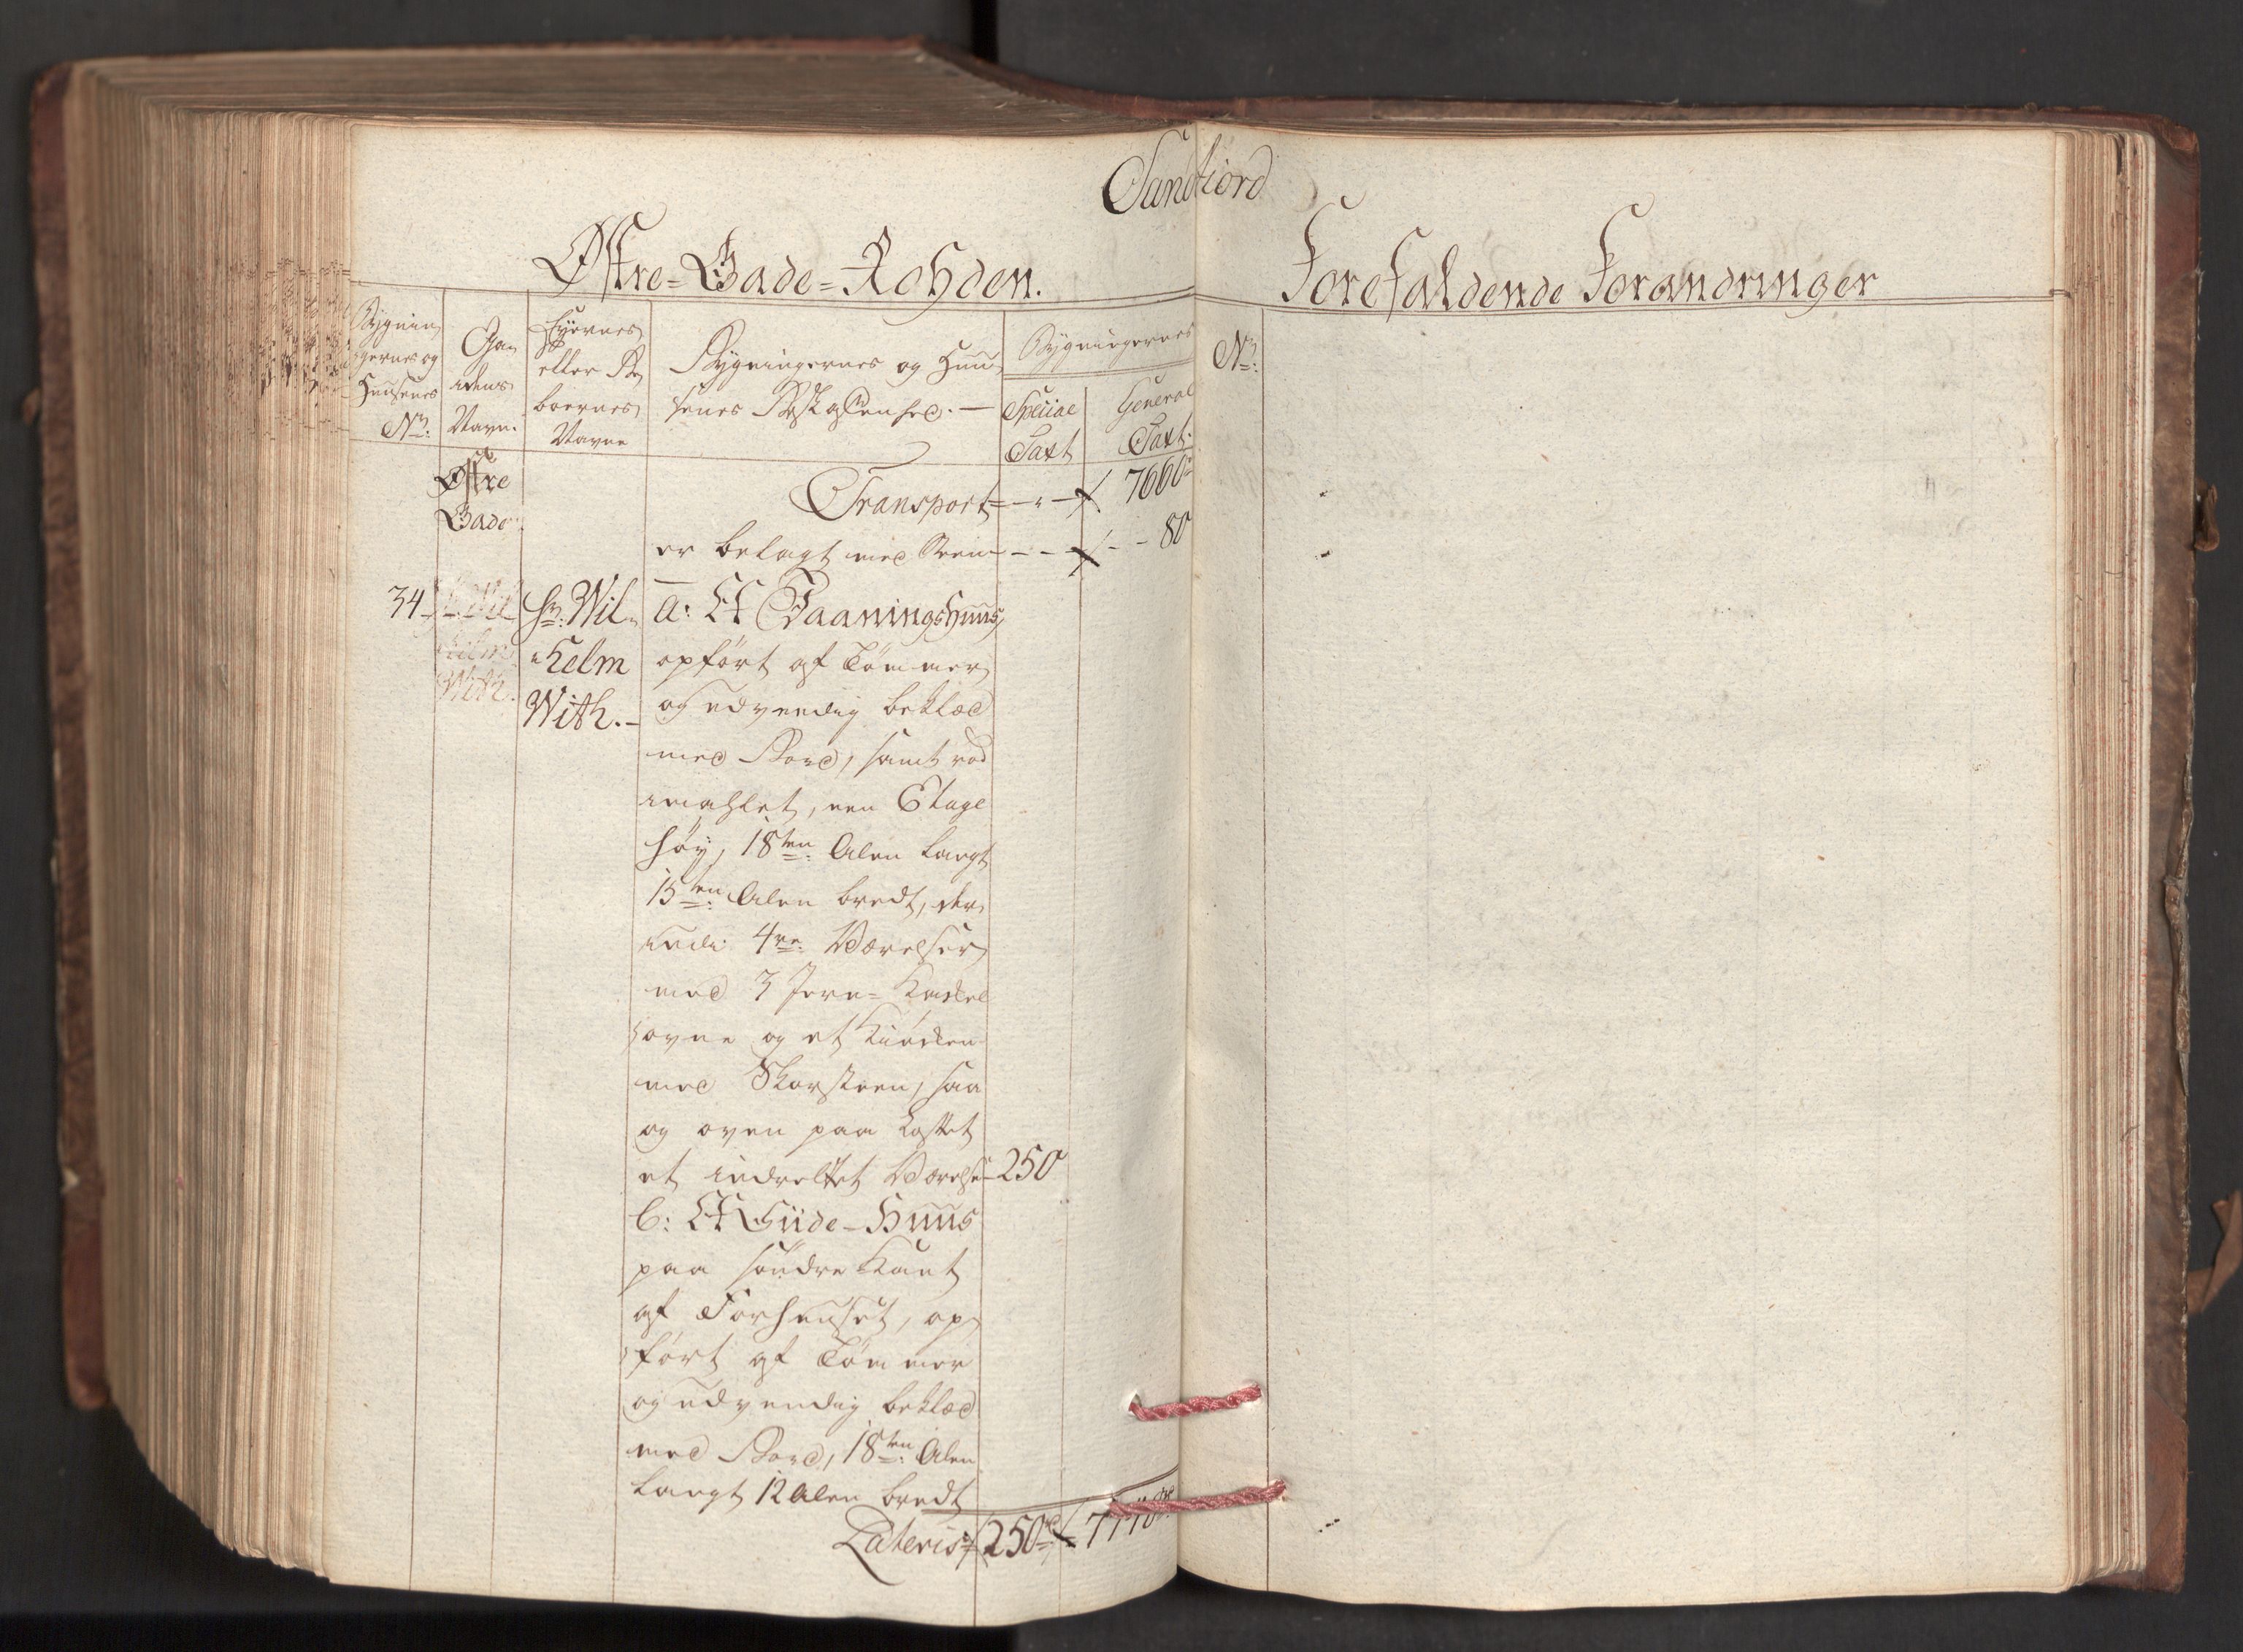 Sandfiord
Østre=Gade=Rohden.
Forefaldende Forandringer
Bygnin
gernes og
Huusenes
No:
Ga
dens
Navn.
Eyernes
eller Be
boernes
Navne
Bygningernes og Huu
senes Beskaffenhed. —
Bygningernes
Special
Taxt
General
Taxt.
No:
Østre
Gade
Transport 7660
er belagt med Steen - - - 80
34 Hr: Wil
helm
With.
Hr: Wil
helm
With. —
a: Et Vaaningshuus,
opført af Tømmer
og udvendig beklæd
med Bord, samt rød
mahlet, een Etage
høy, 18ten Alen langt
15ten Alen bredt, der
inde 4re Værelser
med 3 Jern= Kackel
ovne og et Kiøcken
med Skorsteen, saa
og oven paa Loftet
et indrettet Værelse 250
b: Et Siide-Huus
paa søndre Kant
af Forhuuset, op
ført af Tømmer
og udvendig beklæd
med Bord, 18ten Alen
langt 12 Alen bredt
Lateris 250